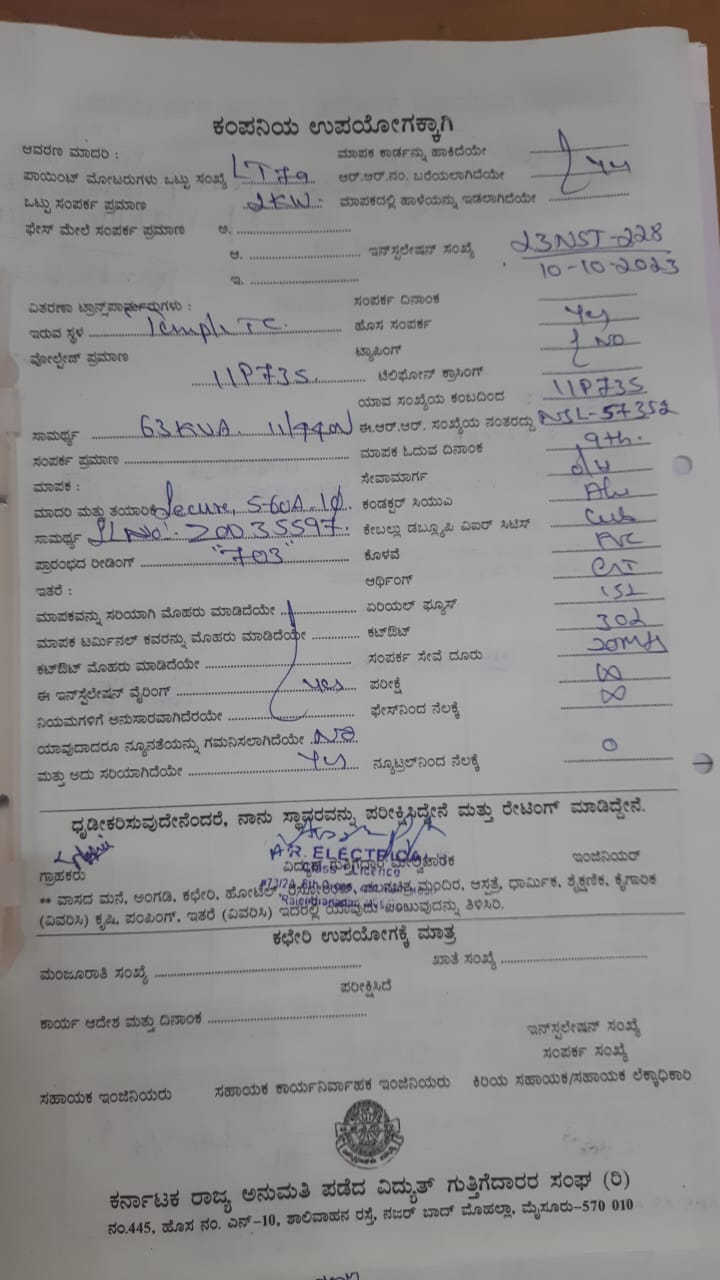 ಕಂಪನಿಯ ಉಪಯೋಗಕ್ಕಾಗಿ
ಆವರಣ ಮಾದರಿ : ಮಾಪಕ ಕಾರ್ಡನ್ನು ಹಾಕಿದೆಯೇ
ಪಾಯಿಂಟ್ ಮೋಟರುಗಳು ಒಟ್ಟು ಸಂಖ್ಯೆ LT7a ಆರ್.ಆರ್.ನಂ. ಬರೆಯಲಾಗಿದೆಯೇ Yes
ಒಟ್ಟು ಸಂಪರ್ಕ ಪ್ರಮಾಣ 2KW. ಮಾಪಕದಲ್ಲಿ ಹಾಳೆಯನ್ನು ಇಡಲಾಗಿದೆಯೇ
ಫೇಸ್ ಮೇಲೆ ಸಂಪರ್ಕ ಪ್ರಮಾಣ ಅ.
ಆ. ಇನ್‌ಸ್ಟಲೇಷನ್ ಸಂಖ್ಯೆ 23NST-228
ಇ. 10-10-2023
ವಿತರಣಾ ಟ್ರಾನ್ಸ್‌ಪಾರ್ಮರುಗಳು : ಸಂಪರ್ಕ ದಿನಾಂಕ
ಇರುವ ಸ್ಥಳ Temple TC. ಹೊಸ ಸಂಪರ್ಕ Yes
ವೋಲ್ಟೇಜ್ ಪ್ರಮಾಣ ಟ್ಯಾಪಿಂಗ್ NO
11P735. ಟೆಲಿಫೋನ್ ಕ್ರಾಸಿಂಗ್
ಯಾವ ಸಂಖ್ಯೆಯ ಕಂಬದಿಂದ 11P735
ಸಾಮರ್ಥ್ಯ 63KVA. 11/440V ಈ.ಆರ್.ಆರ್. ಸಂಖ್ಯೆಯ ನಂತರದ್ದು NSL-57352
ಸಂಪರ್ಕ ಪ್ರಮಾಣ ಮಾಪಕ ಓದುವ ದಿನಾಂಕ 9th.
ಮಾಪಕ : ಸೇವಾಮಾರ್ಗ O/H
ಮಾದರಿ ಮತ್ತು ತಯಾರಿಕೆ Secure, 5-60A. 1Ø. ಕಂಡಕ್ಟರ್ ಸಿಯುಎ Alu
ಸಾಮರ್ಥ್ಯ SL No: 20035597. ಕೇಬಲ್ಲು ಡಬ್ಲ್ಯೂಪಿ ವಿಐರ್ ಸಿಟಿಸ್
ಪ್ರಾರಂಭದ ರೀಡಿಂಗ್ "703" ಕೊಳವೆ PVC
ಇತರೆ : ಆರ್ಥಿಂಗ್
ಮಾಪಕವನ್ನು ಸರಿಯಾಗಿ ಮೊಹರು ಮಾಡಿದೆಯೇ ಏರಿಯಲ್ ಫ್ಯೂಸ್
ಮಾಪಕ ಟರ್ಮಿನಲ್ ಕವರನ್ನು ಮೊಹರು ಮಾಡಿದೆಯೇ ಕಟ್‌ಔಟ್
ಕಟ್‌ಔಟ್ ಮೊಹರು ಮಾಡಿದೆಯೇ ಸಂಪರ್ಕ ಸೇವೆ ದೂರು 20Mts
ಈ ಇನ್‌ಸ್ಟೆಲೇಷನ್ ವೈರಿಂಗ್ Yes ಪರೀಕ್ಷೆ ∞
ನಿಯಮಗಳಿಗೆ ಅನುಸಾರವಾಗಿದೆರಯೇ ಫೇಸ್‌ನಿಂದ ನೆಲಕ್ಕೆ ∞
ಯಾವುದಾದರೂ ನ್ಯೂನತೆಯನ್ನು ಗಮನಿಸಲಾಗಿದೆಯೇ No
ಮತ್ತು ಅದು ಸರಿಯಾಗಿದೆಯೇ Yes ನ್ಯೂಟ್ರಲ್‌ನಿಂದ ನೆಲಕ್ಕೆ 0
ಧೃಡೀಕರಿಸುವುದೇನೆಂದರೆ, ನಾನು ಸ್ಥಾವರವನ್ನು ಪರೀಕ್ಷಿಸಿದ್ದೇನೆ ಮತ್ತು ರೇಟಿಂಗ್ ಮಾಡಿದ್ದೇನೆ.
A.R. ELECTRICAL
ಗ್ರಾಹಕರು ವಿದ್ಯುತ್ ಗುತ್ತಿಗೆದಾರ ಮೇಲ್ವಿಚಾರಕ ಇಂಜಿನಿಯರ್
** ವಾಸದ ಮನೆ, ಅಂಗಡಿ, ಕಛೇರಿ, ಹೋಟೆಲ್ ಮಂದಿರ, ಆಸ್ಪತ್ರೆ, ಧಾರ್ಮಿಕ, ಶೈಕ್ಷಣಿಕ, ಕೈಗಾರಿಕ
(ವಿವರಿಸಿ) ಕೃಷಿ, ಪಂಪಿಂಗ್, ಇತರೆ (ವಿವರಿಸಿ) ಇದರಲ್ಲಿ ಯಾವುದು ಎಂಬುವುದನ್ನು ತಿಳಿಸಿರಿ.
ಕಛೇರಿ ಉಪಯೋಗಕ್ಕೆ ಮಾತ್ರ
ಮಂಜೂರಾತಿ ಸಂಖ್ಯೆ ಖಾತೆ ಸಂಖ್ಯೆ
ಪರೀಕ್ಷಿಸಿದೆ
ಕಾರ್ಯ ಆದೇಶ ಮತ್ತು ದಿನಾಂಕ
ಇನ್‌ಸ್ಟಲೇಷನ್ ಸಂಖ್ಯೆ
ಸಂಪರ್ಕ ಸಂಖ್ಯೆ
ಸಹಾಯಕ ಇಂಜಿನಿಯರು ಸಹಾಯಕ ಕಾರ್ಯನಿರ್ವಾಹಕ ಇಂಜಿನಿಯರು ಕಿರಿಯ ಸಹಾಯಕ/ಸಹಾಯಕ ಲೆಕ್ಕಾಧಿಕಾರಿ
ಕರ್ನಾಟಕ ರಾಜ್ಯ ಅನುಮತಿ ಪಡೆದ ವಿದ್ಯುತ್ ಗುತ್ತಿಗೆದಾರರ ಸಂಘ (ರಿ)
ನಂ.445, ಹೊಸ ನಂ. ಎನ್-10, ಶಾಲಿವಾಹನ ರಸ್ತೆ, ನಜರ್ ಬಾದ್ ಮೊಹಲ್ಲಾ, ಮೈಸೂರು-570 010